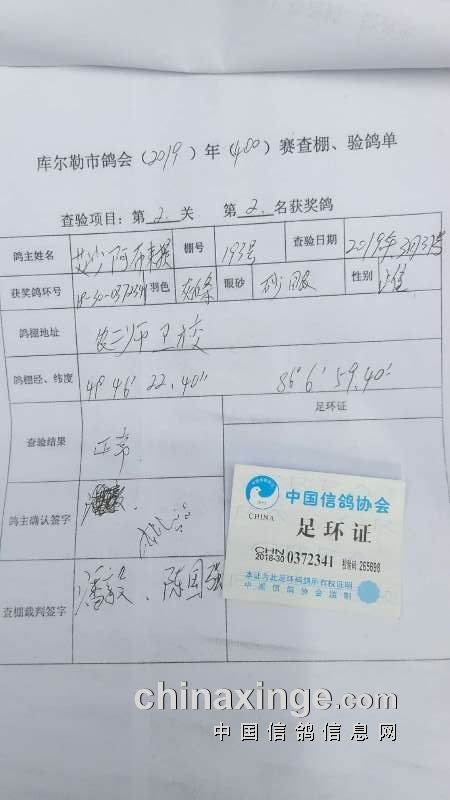 库尔勒市鸽会(2019)年(400)赛查棚、验鸽单
查验项目:第2关 第2.名获奖鸽
鸽主姓名 棚号 193号 查验日期 2019年3月31号
获奖鸽环号 18-30-0372341 羽色 眼砂 砂眼 性别 雄
鸽棚地址 农二师卫校
鸽棚经、纬度 41° 46′ 22.40″ 86° 6′ 59.40″
查验结果 正常. 足环证
鸽主确认签字
查棚裁判签字 潘毅、陈国强
中国信鸽协会
CHINA
足环证
CHN
2018-30 0372341 校验码:265698
本证为此足环赛鸽所有权证明
中国信鸽协会监制
chinaxinge.com
中国信鸽信息网